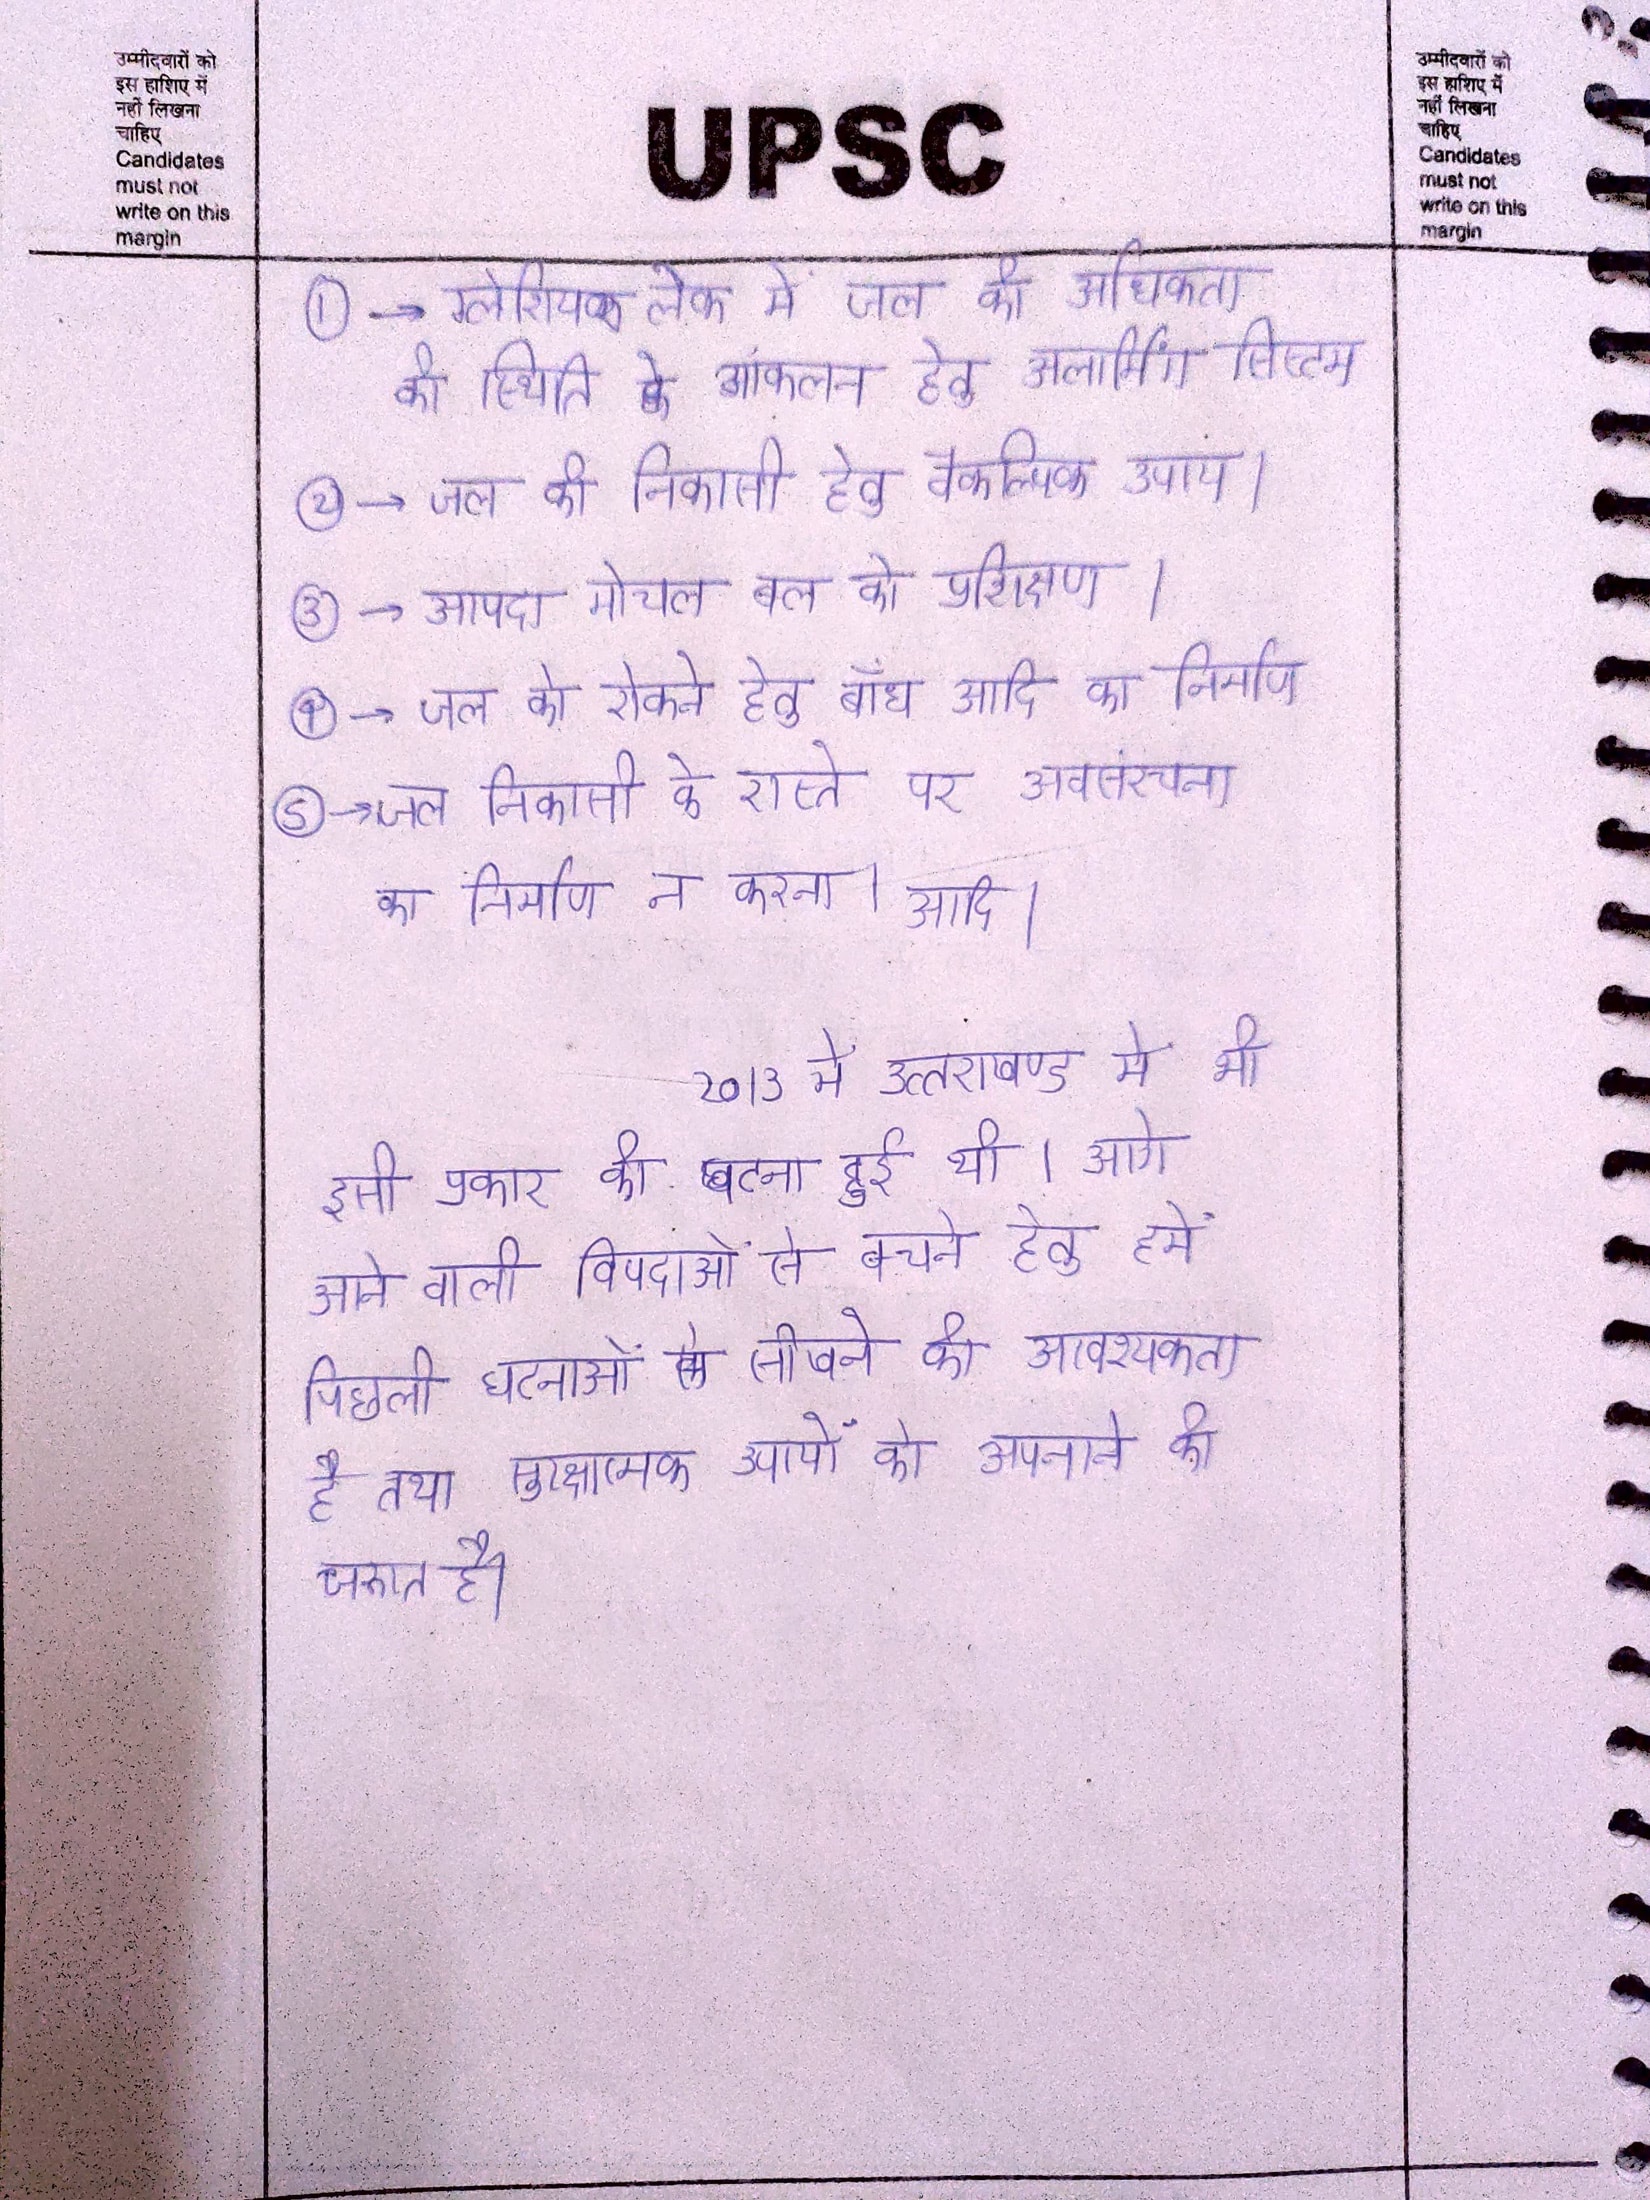 उम्मीदवारों को
इस हाशिए में
नहीं लिखना
चाहिए
Candidates
must not
write on this
margin
UPSC
उम्मीदवारों को
इस हाशिए में
नहीं लिखना
चाहिए
Candidates
must not
write on this
margin
① → ग्लेशियर लेक में जल की अधिकता
की स्थिति के आंकलन हेतु अलार्मिंग सिस्टम
② → जल की निकासी हेतु वैकल्पिक उपाय।
③ → आपदा मोचल बल को प्रशिक्षण ।
④ → जल को रोकने हेतु बाँध आदि का निर्माण
⑤ → जल निकासी के रास्ते पर अवसंरचना
का निर्माण न करना। आदि।
2013 में उत्तराखण्ड में भी
इसी प्रकार की घटना हुई थी । आगे
आने वाली विपदाओं से बचने हेतु हमें
पिछली घटनाओं से सीखने की आवश्यकता
है तथा सुरक्षात्मक उपायों को अपनाने की
जरूरत है।